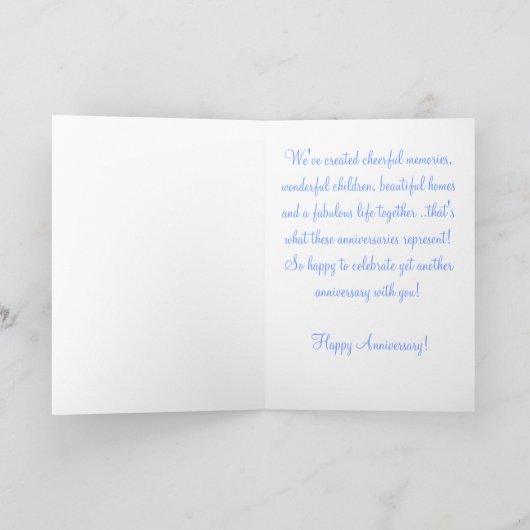 We've created cheerful memories,
wonderful children, beautiful homes
and a fabulous life together ..that's
what these anniversaries represent!
So happy to celebrate yet another
anniversary with you!
Happy Anniversary!